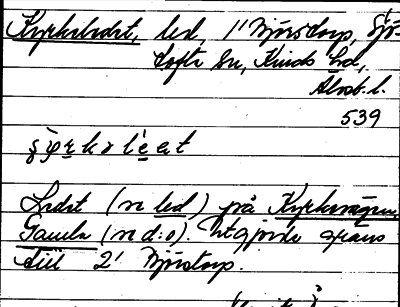 Kyrkeledet, led, 1' Björstorp, Sjö-
tofta sn, Kinds hd,
Älvsb. l.
539
Ledet (se led) på Kyrkevägen,
Gamla (se d:o). Utgjorde gräns
till 2' Björstorp.